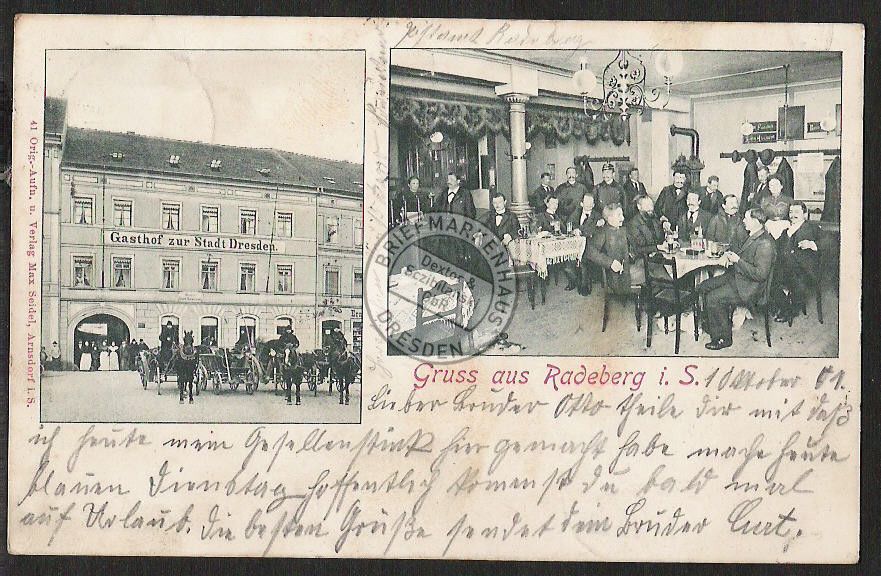 Postamt Radeberg
41 Orig.-Aufn. u. Verlag Max Seidel, Arnsdorf i. S.
Gasthof zur Stadt Dresden.
BRIEFMARKENHAUS
Dexter &
Sczibilanski
GbR
DRESDEN
Gruss aus Radeberg i. S. 1 Oktober 01.
Lieber Bruder Otto theile dir mit daß
ich heute mein Gesellenstück hier gemacht habe mache heute
blauen Dienstag hoffentlich komenst du bald mal
auf Urlaub. die besten Grüße sendet dein Bruder Curt.